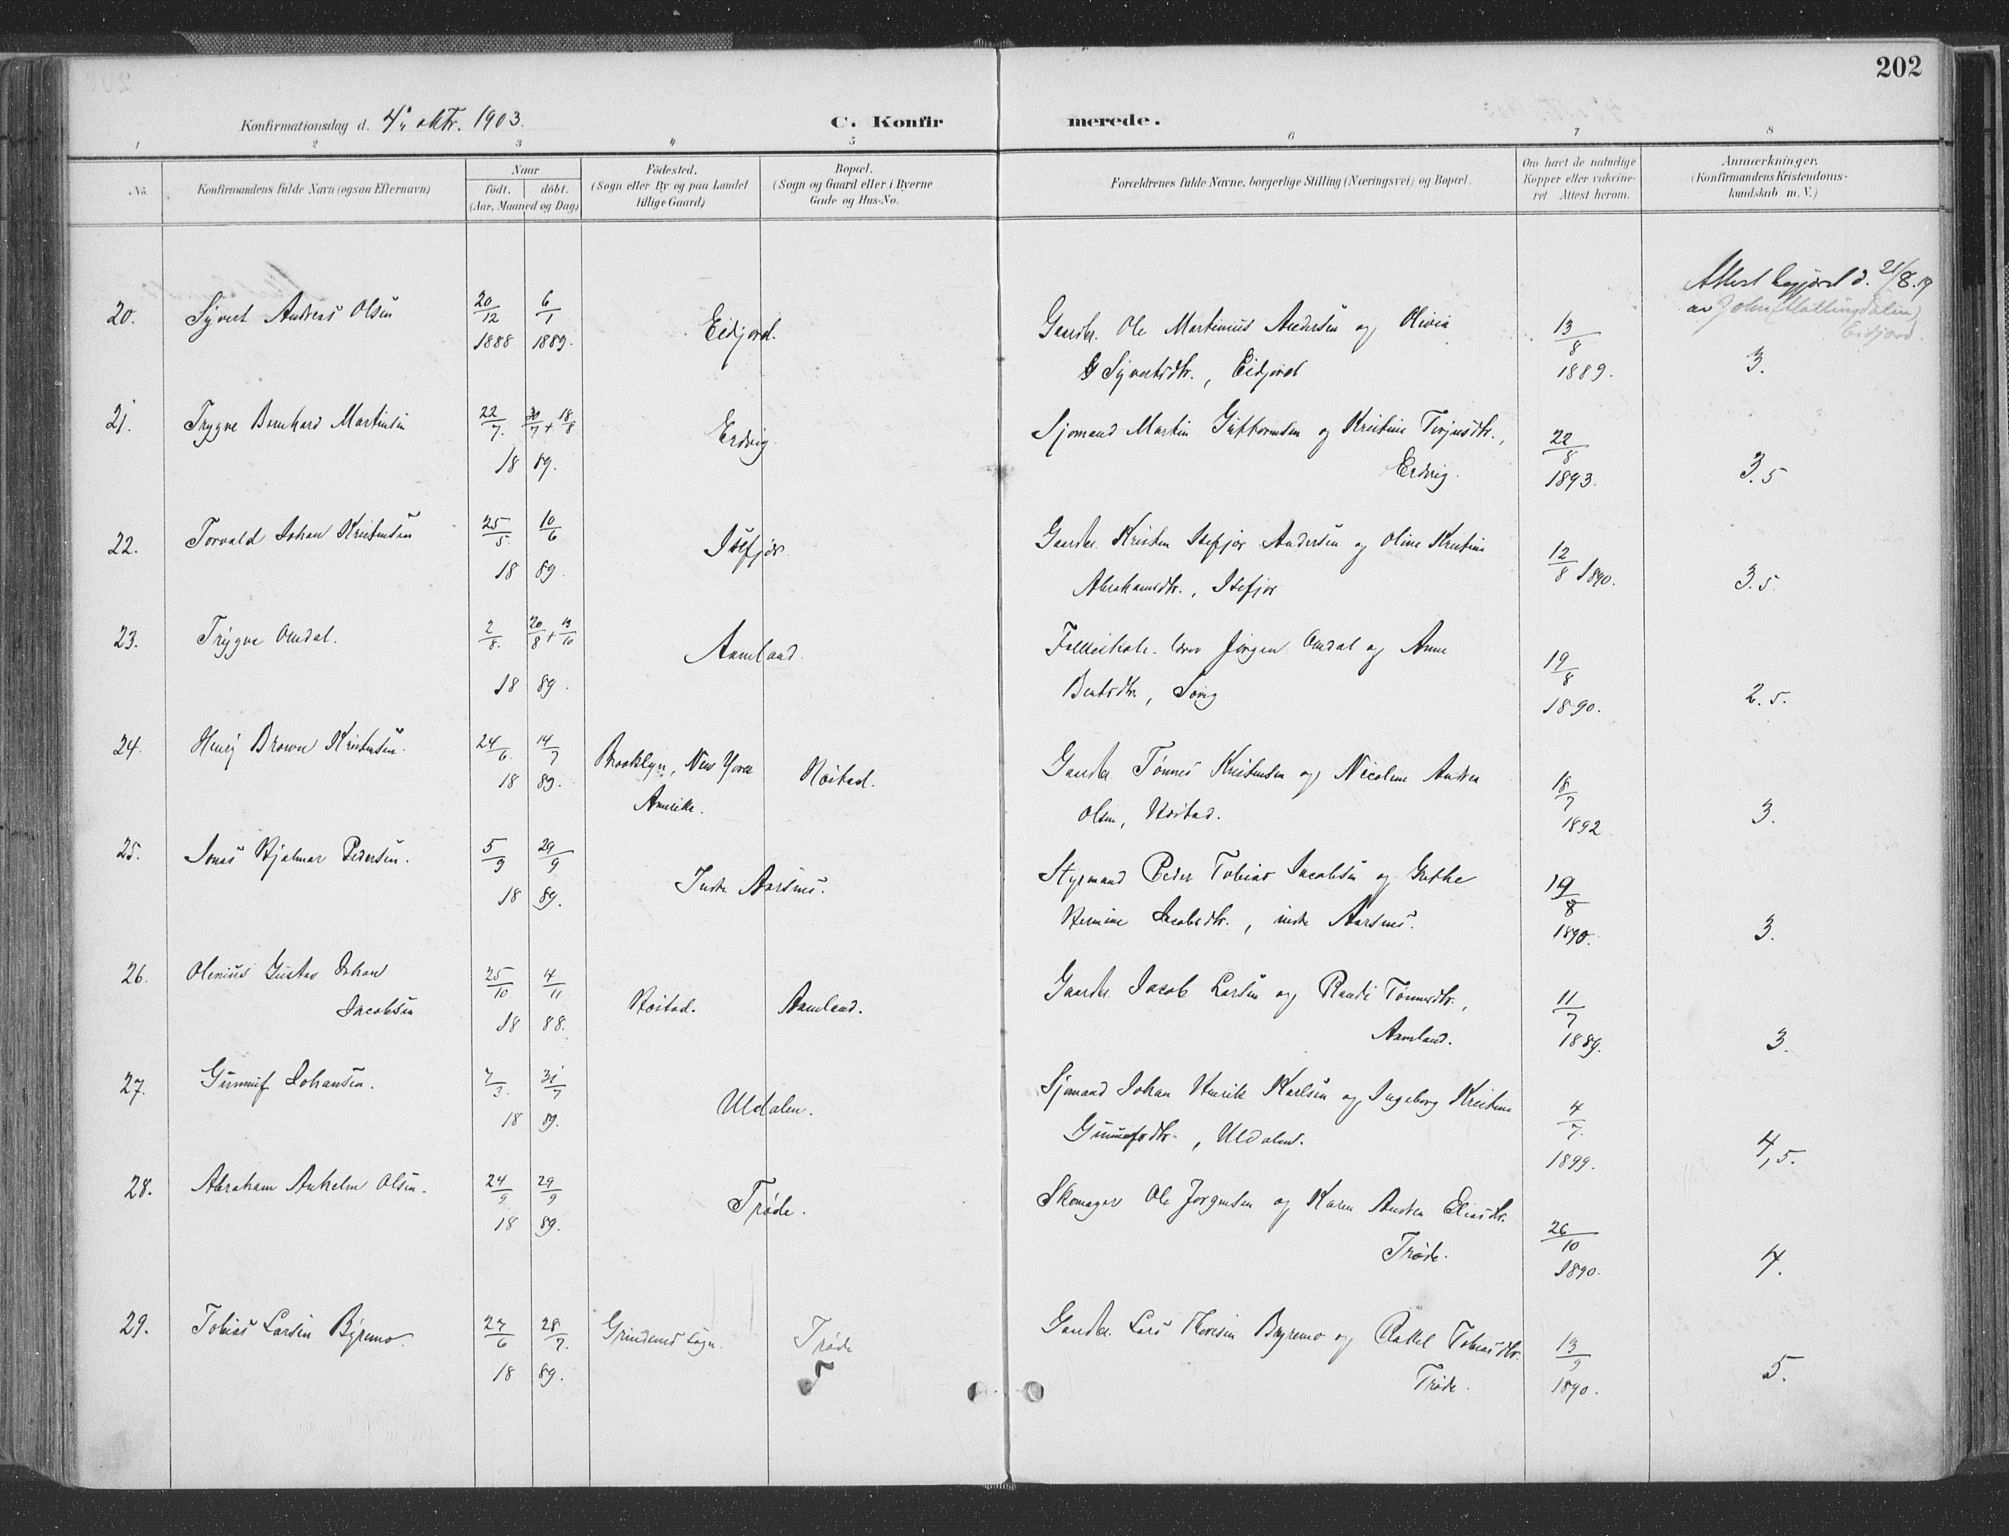 202
Konfirmationsdag d. 4de oktr. 1903.
C. Konfirmerede.
1 2 3 4 5 6 7 8
No.
Konfirmandens fulde Navn (ogsaa Efternavn)
Naar
födt. döbt.
(Aar, Maaned og Dag)
Födested.
(Sogn eller By og paa Landet
tillige Gaard)
Bopæl.
(Sogn og Gaard eller i Byerne
Gade og Hus-No.
Forældrenes fulde Navne, borgerlige Stilling (Næringsvei) og Bopæl.
Om havt de naturlige
Kopper eller vakcine-
ret Attest herom.
Anmærkninger.
(Konfirmandens Kristendoms-
kundskab m. V.)
Attest begjæret d. 21/8.19
av John
Eidjord.
20. Syvert Andreas Olsen 20/12 1888 6/1 1889. Eidjord. Gaardbr. Ole Martinius Andersen og Olivia 13/8 1889. 3.
Syvertsdtr., Eidjord
21. Trygve Bernhard Martinsen 22/7. 30/7 + 18/8 18 89. Erdvig. Sjømand Martin Guttormsen og Kristine Terjesdtr., 22/8 1893. 3.5
Erdvig.
22. Torvald Johan Kristensen 25/5 10/6 18 89. Itefjor Gaardbr. Kristen Itefjor Andersen og Oline Kristine 12/8 1890. 3.5.
Abrahamsdtr., Itefjor
23. Trygve Omdal. 2/8. 20/8 + 13/10 18 89. Aamland. Folkeskole-lærer Jörgen Omdal og Anne 19/8 1890. 2.5.
Bentsdtr., Søng
24. Henry Brown Kristensen. 24/6. 14/7 18 89. Brooklyn, New York Röstad. Gaardbr. Tönnes Kristensen og Nicoline Andrea 18/7 1892 3.
Amerika. Olsen, Röstad.
25. Jonas Hjalmar Pedersen. 5/9 29/9 18 89. Indre Aarsnes. Styrmand Peder Tobias Jacobsen og Grethe 19/8 1890. 3.
Hermine Jacobsdtr., indre Aarsnes.
26. Olenius Gustav Johan 25/10 4/11 18 88. Röstad. Aamland. Gaardbr. Jacob Larsen og Randi Tönnesdtr., 11/7 1889. 3.
Jacobsen Aamland.
27. Gunnuf Johansen. 7/3. 31/7 18 89. Uldalen. Sjømand Johan Henrik Karlsen og Ingeborg Kristine 4/7. 1899. 4,5.
Gunnufsdtr., Uldalen.
28. Abraham Anhelm Olsen. 24/9 29/9 18 89. Trøde. Skomager Ole Jørgensen og Karen Andrea Eliasdtr. 26/10 1890. 4.
Trøde.
29. Tobias Larsen Býremo. 27/6 28/7. 18 89. Grindems sogn. Trøde Gaardbr. Lars Byremo og Rakel Tobiasdtr. 13/9 1890. 5.
Trøde.